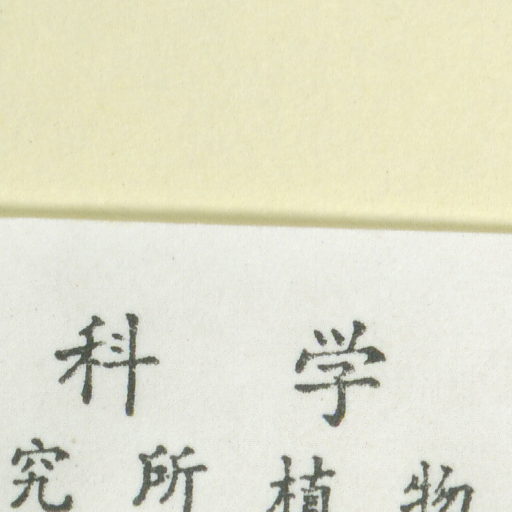 科 学
究 所 植 物